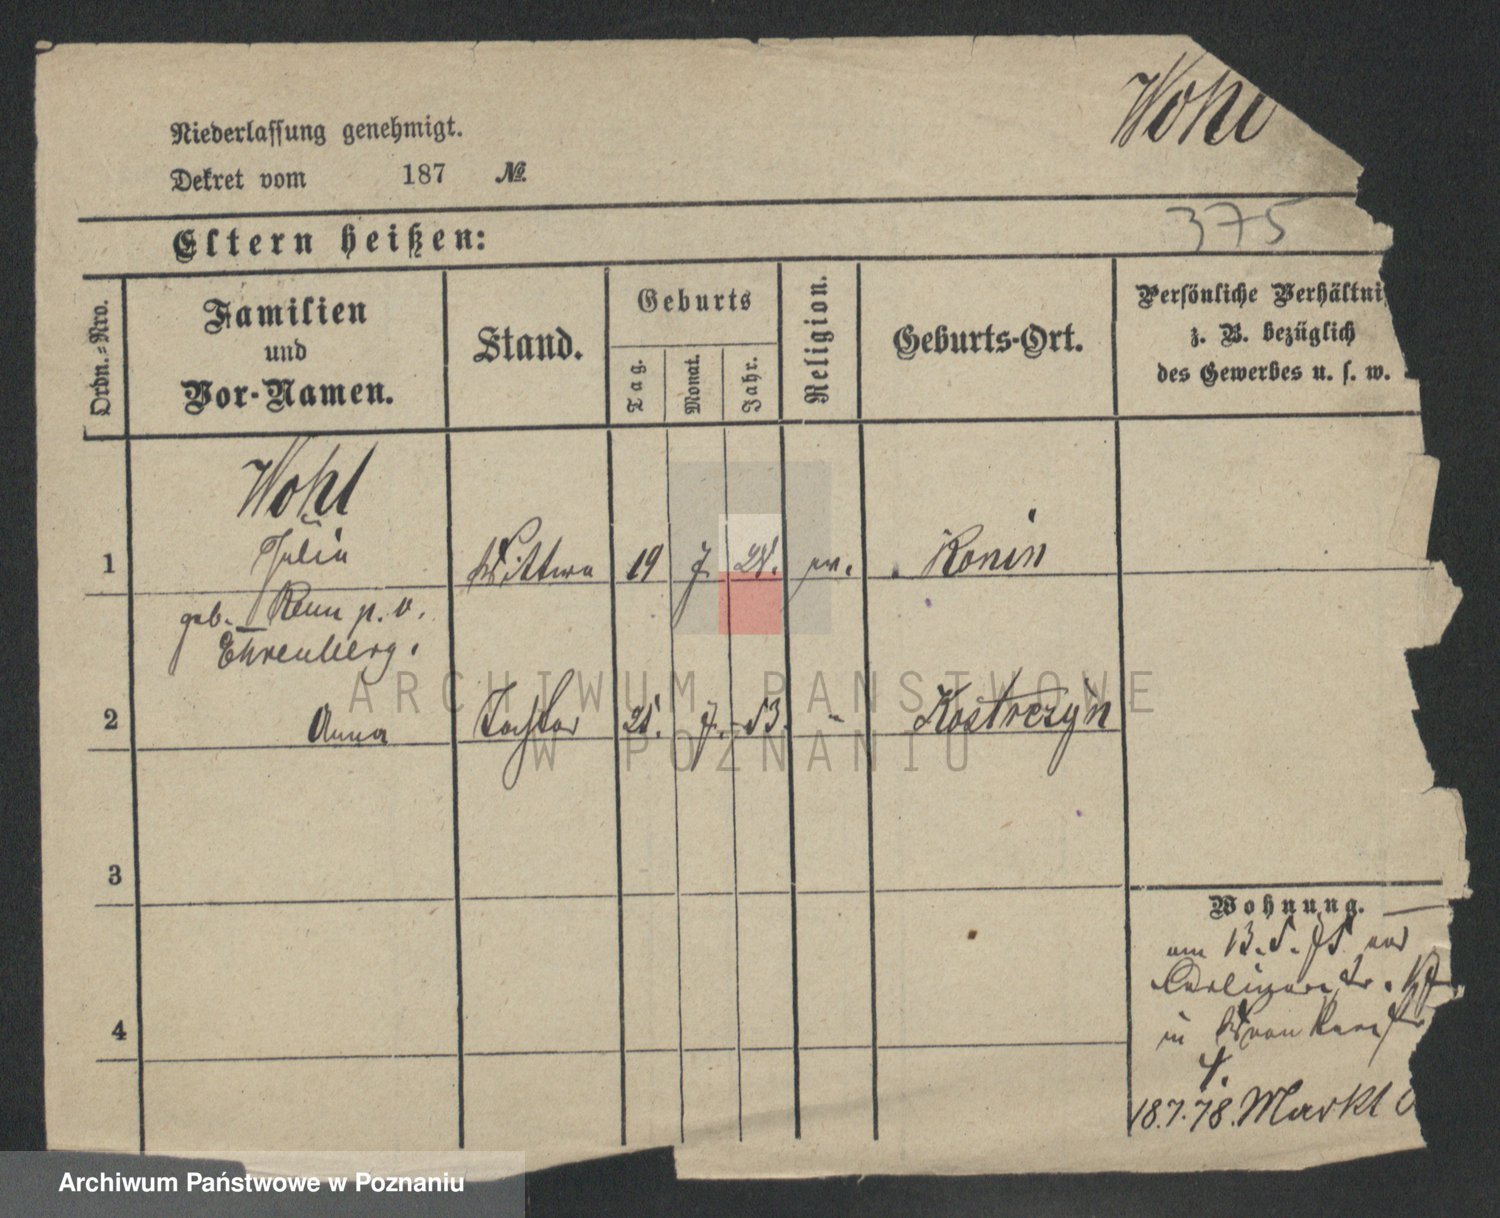 Wohl
Niederlassung genehmigt.
Dekret vom 187 №.
375
Eltern heißen:
Ordn.-Nro.
Familien
und
Vor-Namen.
Stand.
Geburts
Tag.
Monat.
Jahr.
Religion.
Geburts-Ort.
Persönliche Verhältni
z. B. bezüglich
des Gewerbes u. s. w.
Wohl
1 Julia Wittwe 19 7. Konin
geb. p. v.
Ehrenberg.
2 Anna Tochter 25. 7. 53. " Kostrczyn
3
4
Wohnung.
am 13.5.75 aus
in
4.
18.7.78. Markt
ARCHIWUM PAŃSTWOWE
W POZNANIU
Archiwum Państwowe w Poznaniu